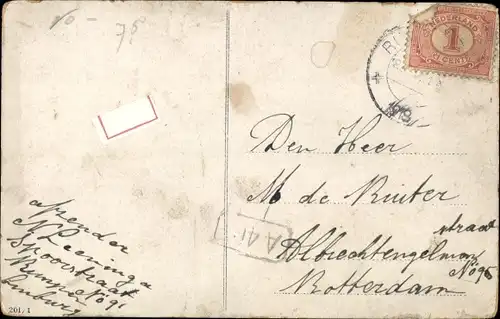 10 - 75
NEDERLAND
1
CENT
Den Heer
M de Ruiter
straat
Albrechtengelman
No 96
Rotterdam
A 41
afzender
N Leeninga
Spoorstraat
No 91
Limburg
201/1